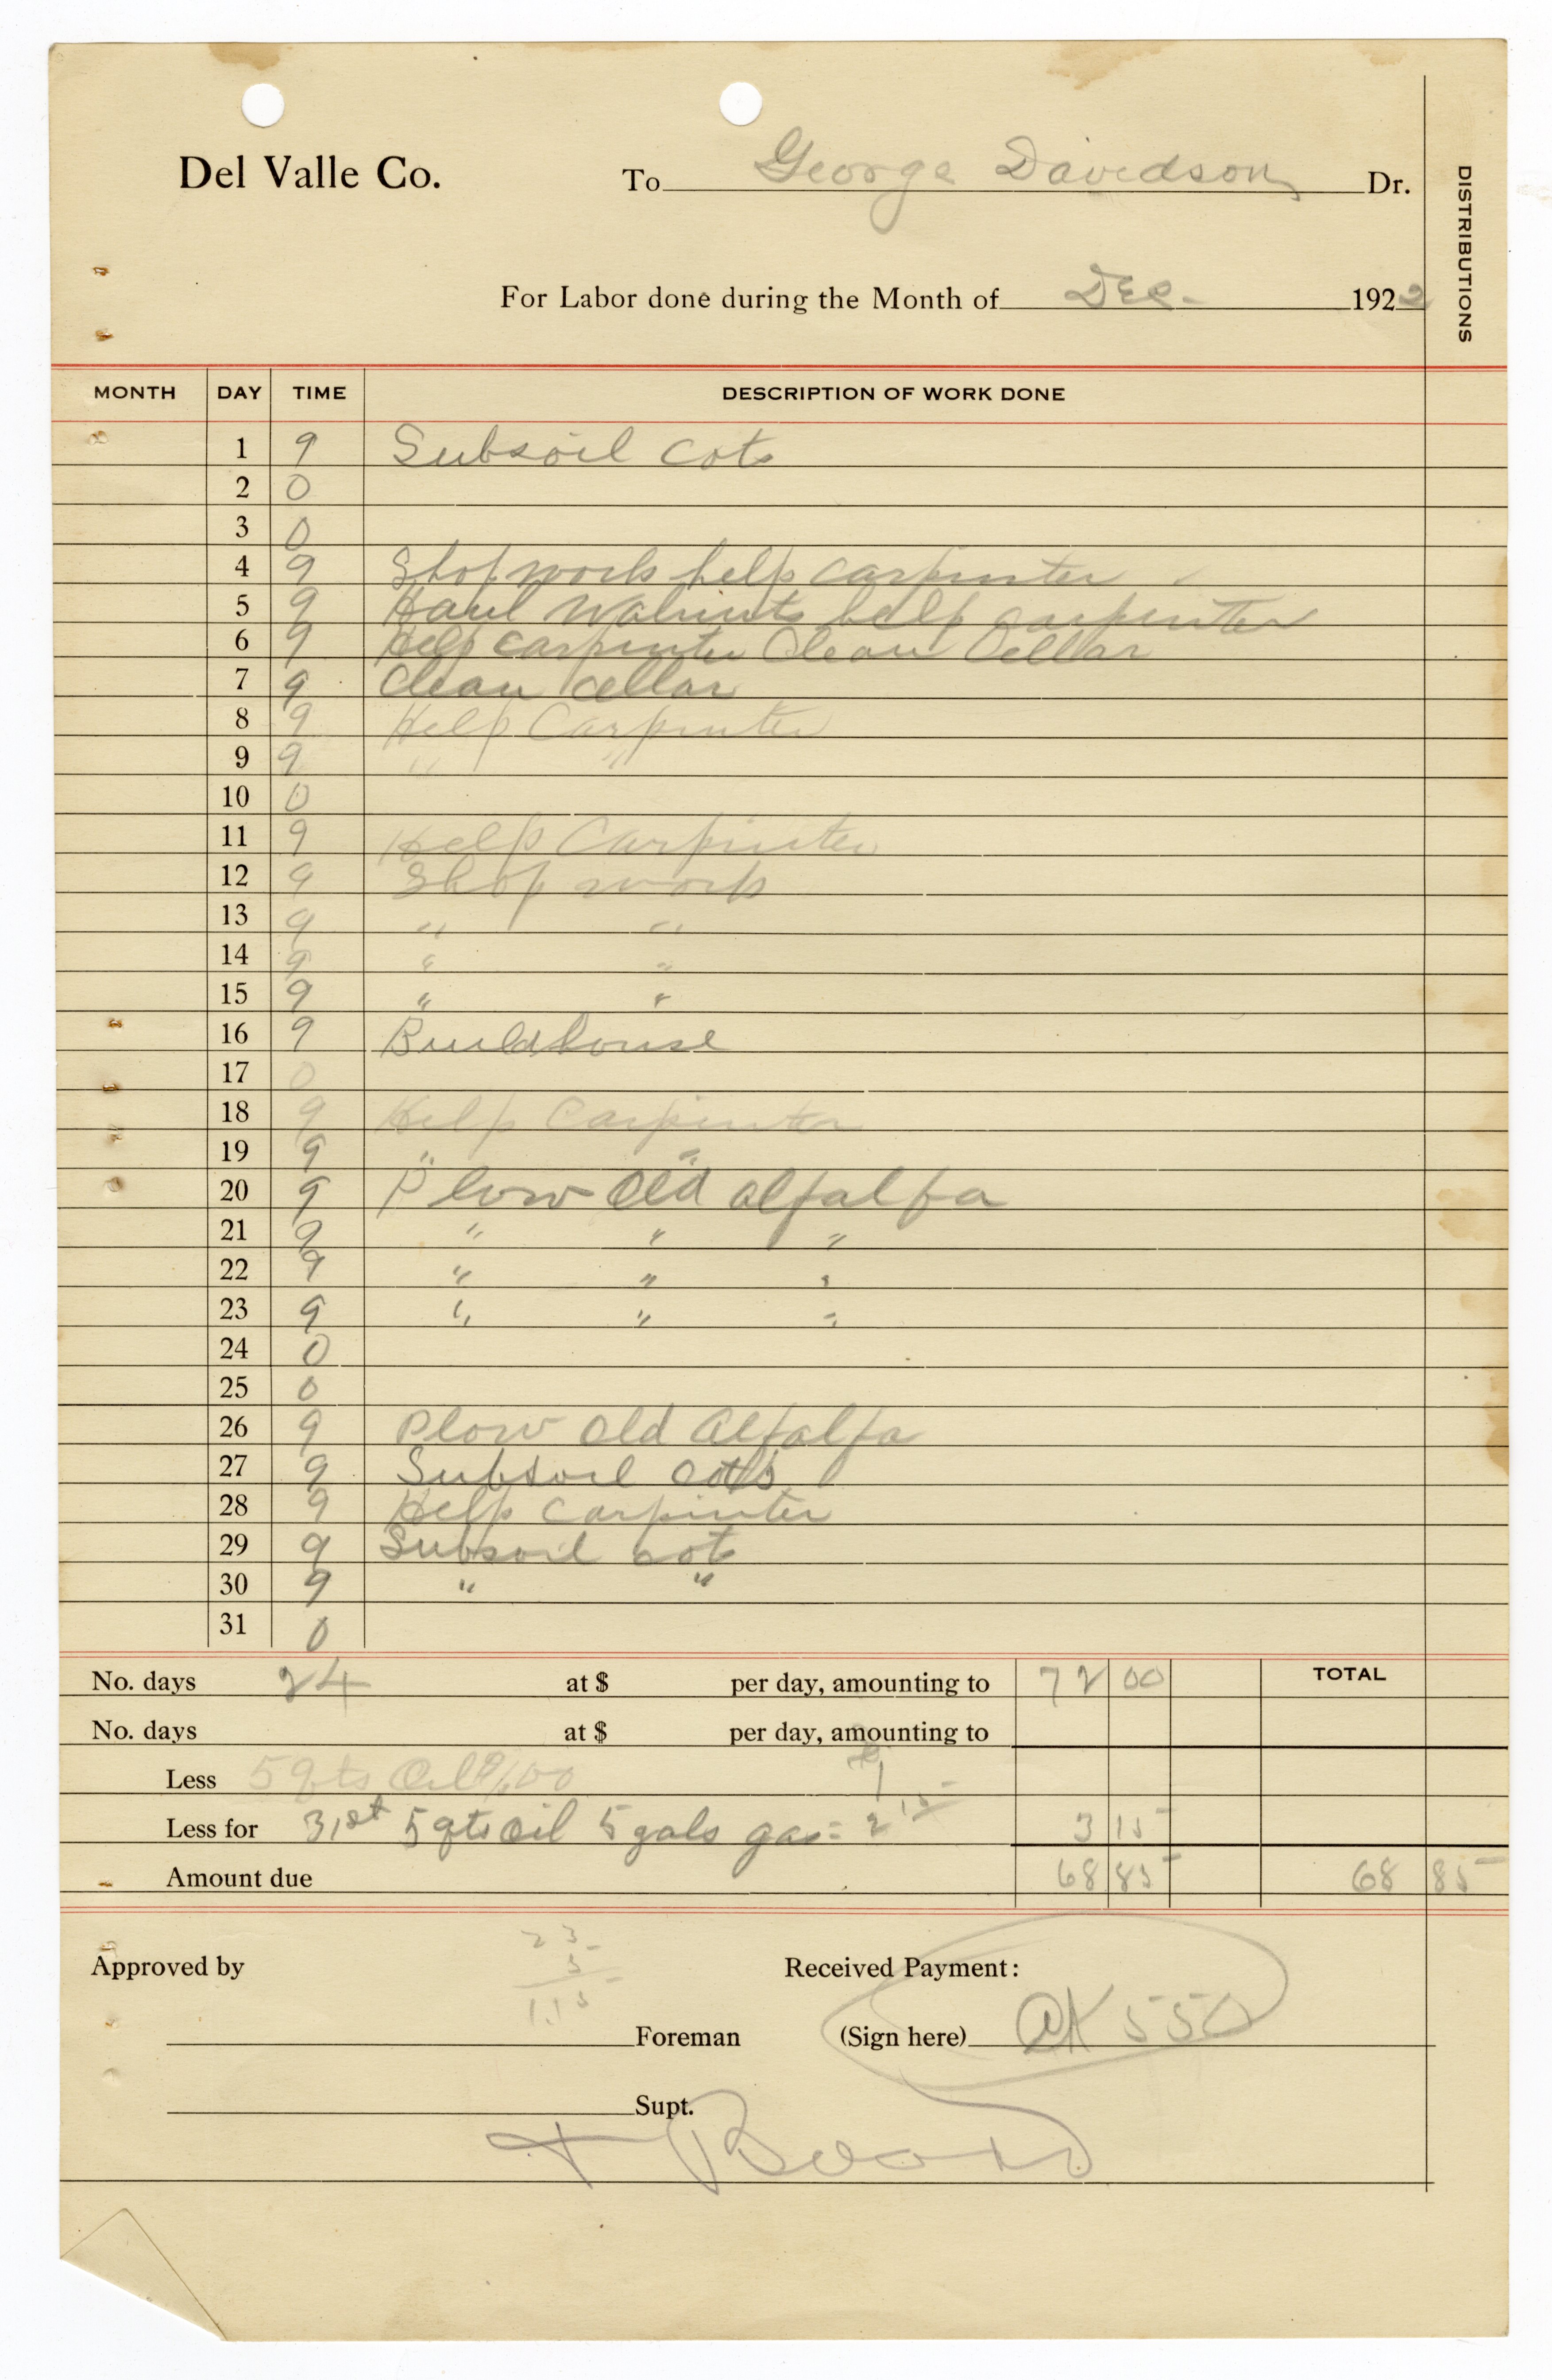 Del Valle Co. To George Davidson Dr.
DISTRIBUTIONS
For Labor done during the Month of Dec. 1922
MONTH DAY TIME DESCRIPTION OF WORK DONE
1 9 Subsoil cots
2 0
3 0
4 9 Shop work help carpinter
5 9 Haul Walnuts help carpenter
6 9 Help carpinter Clean Cellar
7 9 Clean cellar
8 9 Help Carpinter
9 9 " "
10 0
11 9 Help Carpinter
12 9 Shop work
13 9 " "
14 9 " "
15 9 " "
16 9 Buildhouse
17 0
18 9 Help Carpinter
19 9 " "
20 9 Plow Old alfalfa
21 9 " " "
22 9 " " "
23 9 " " "
24 0
25 0
26 9 Plow Old Alfalfa
27 9 Subsoil cots
28 9 Help Carpinter
29 9 Subsoil cots
30 9 " "
31 0
No. days 24 at $ per day, amounting to 72 00 TOTAL
No. days at $ per day, amounting to
Less 5 qts Oil 1.00
Less for 31st 5 qts oil 5 gals gas = 2 15 3 15
Amount due 68 85 68 85
23
5
1.15
Approved by Received Payment:
Foreman (Sign here) OK 550
Supt.